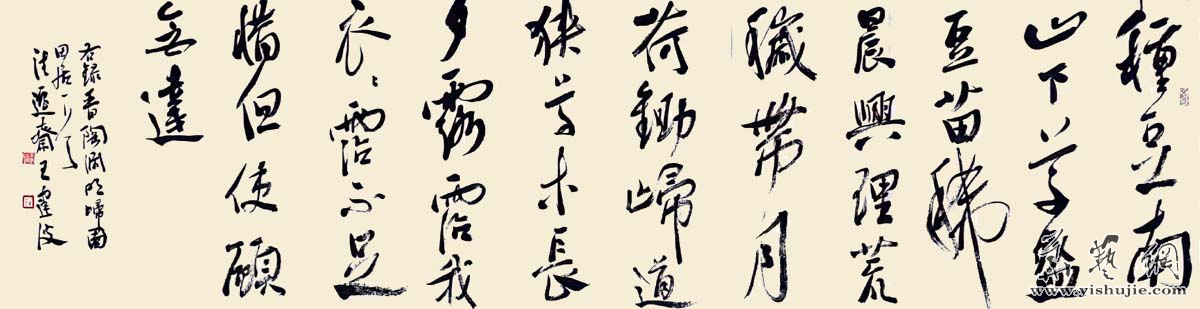 種豆南
山下草盛
豆苗稀
晨興理荒
穢帶月
荷鋤歸道
狹草木長
夕露霑我
衣〻霑不足
惜但使願
無違
右録晋陶淵明歸園
田居一首
齋王波
藝網
www.yishujie.com